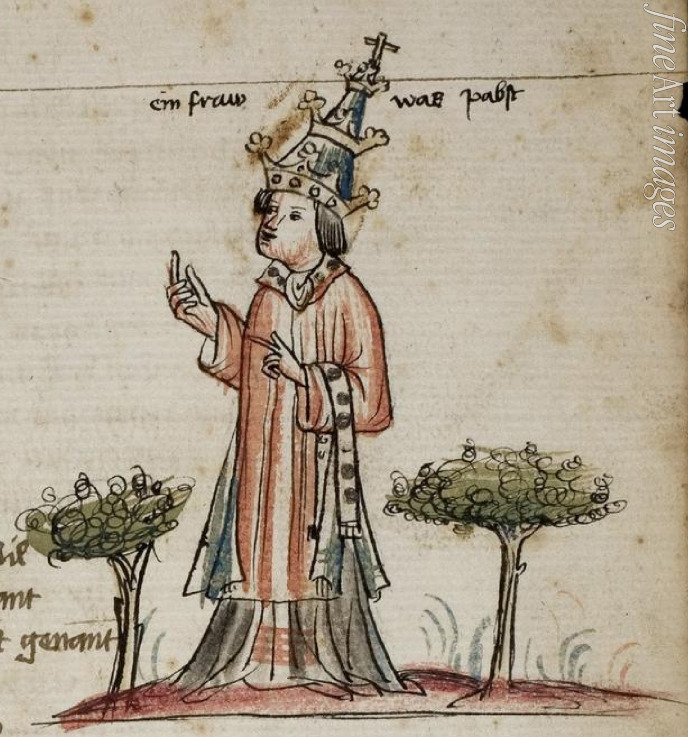 ein fraw was pabst
ant
genant
fineArt images